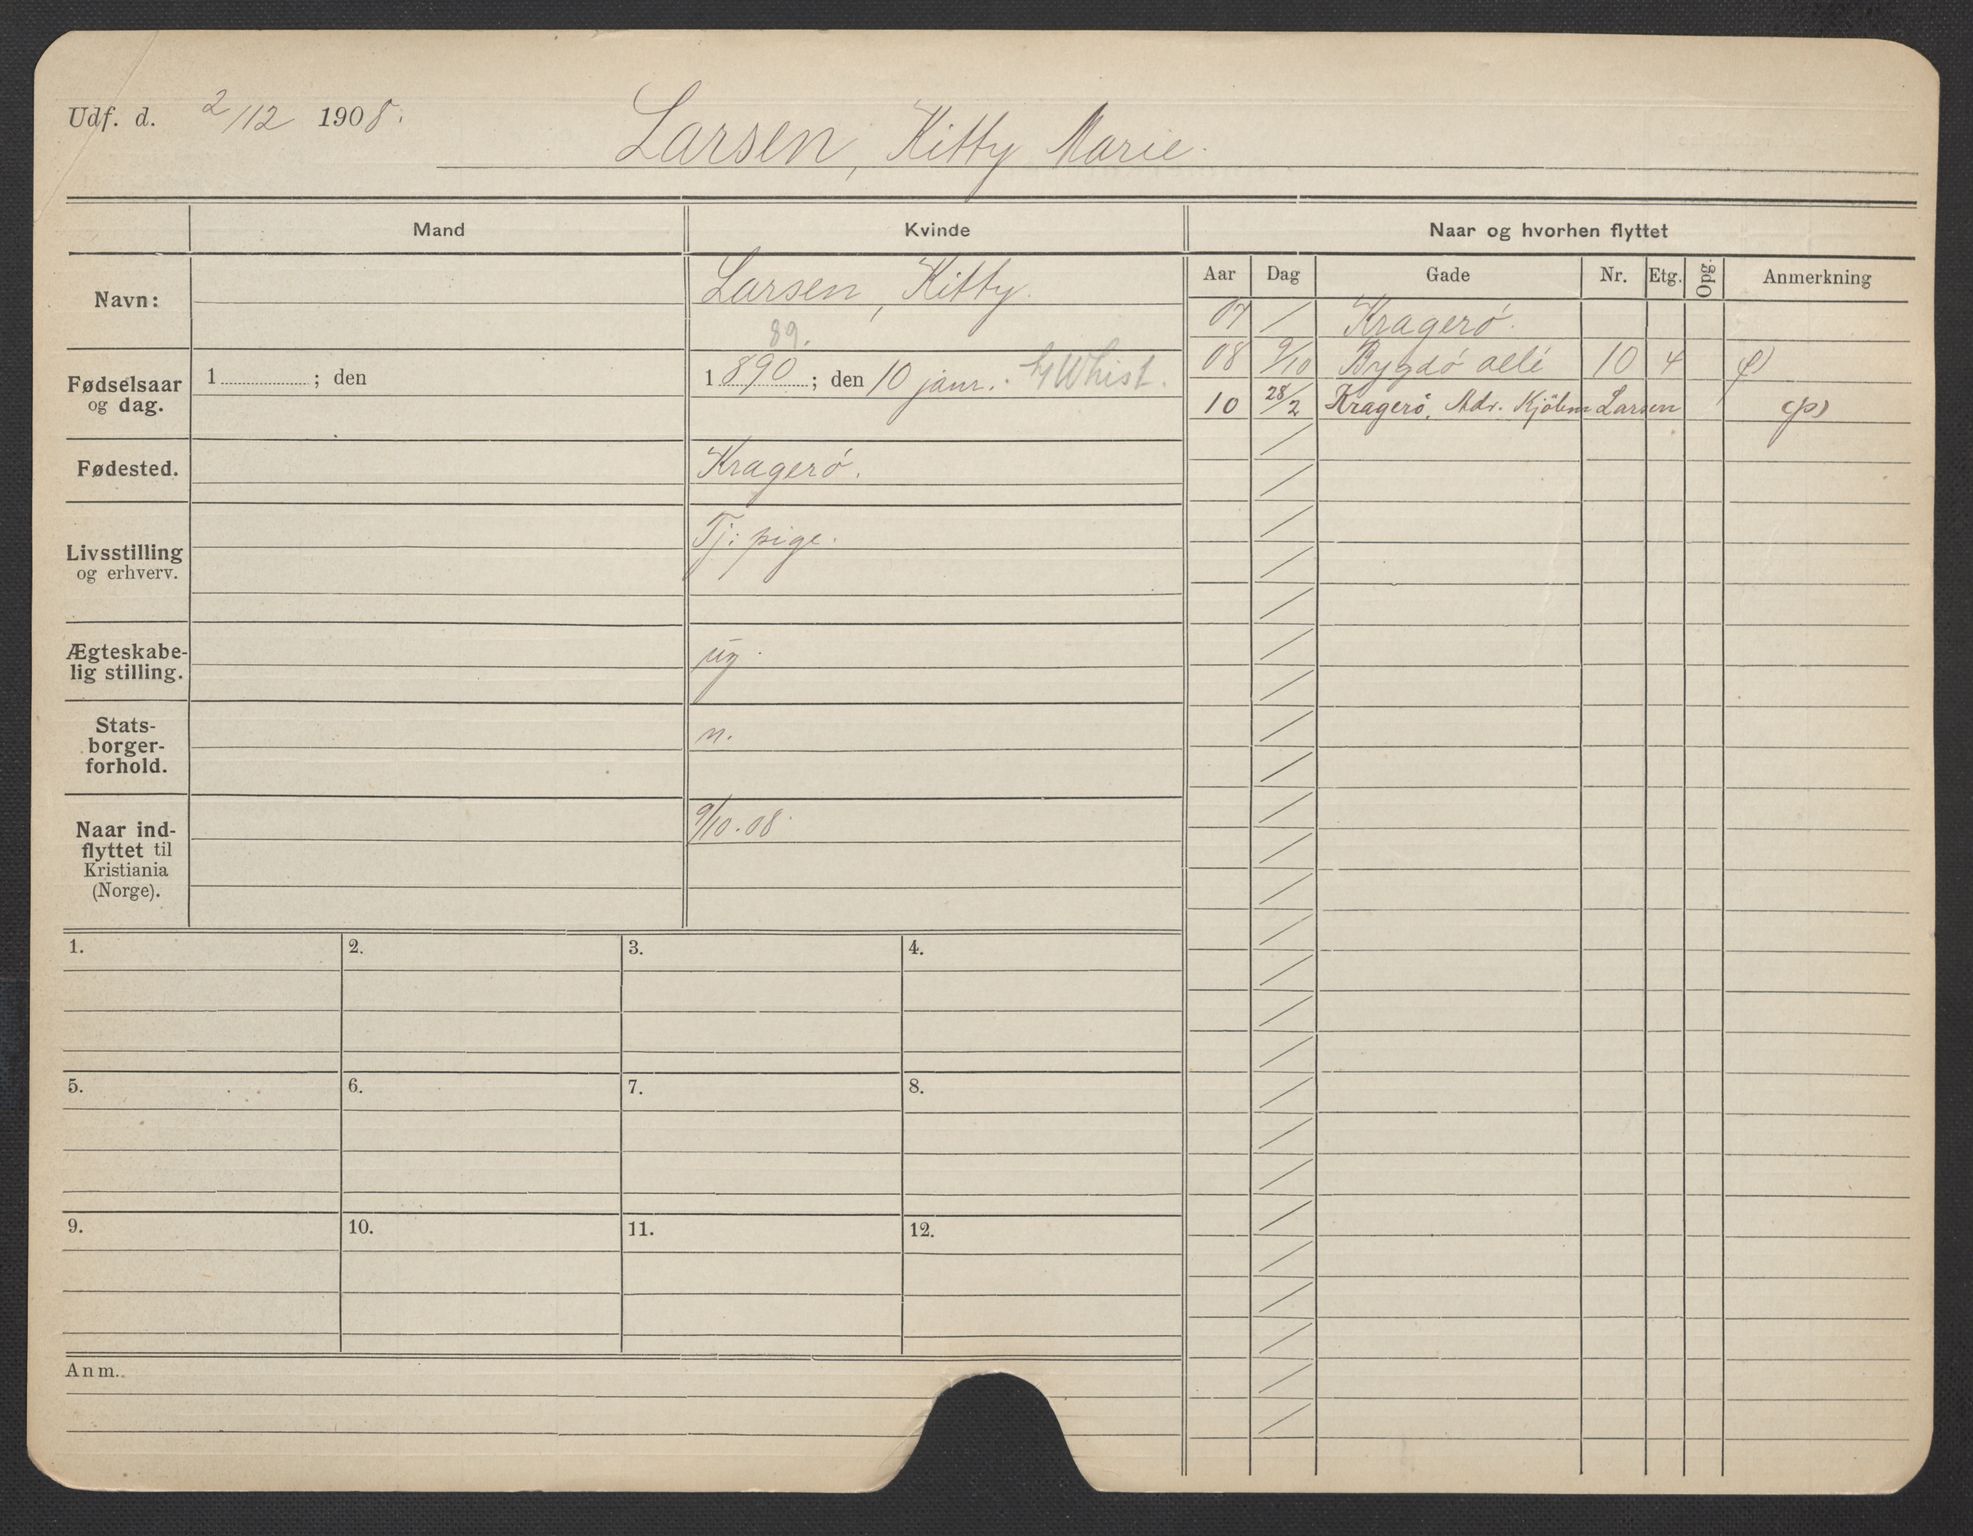 Udf. d. 2/12 1908.
Larsen, Kitty Marie.
Mand
Kvinde
Naar og hvorhen flyttet
Navn:
Larsen, Kitty.
Aar Dag Gade Nr. Etg. Opg. Anmerkning
07 / Kragerø.
08 9/10 Bygdø allé 10 4
10 28/2 Kragerø. Adr. Larsen
89.
Fødselsaar
og dag.
1 ; den
1 890 ; den 10 janr.
Fødested.
Kragerø.
Livsstilling
og erhverv.
Tj: pige.
Ægteskabe-
lig stilling.
ug.
Stats-
borger-
forhold.
n.
Naar ind-
flyttet til
Kristiania
(Norge).
9/10.08.
1. 2. 3. 4.
5. 6. 7. 8.
9. 10. 11. 12.
Anm.